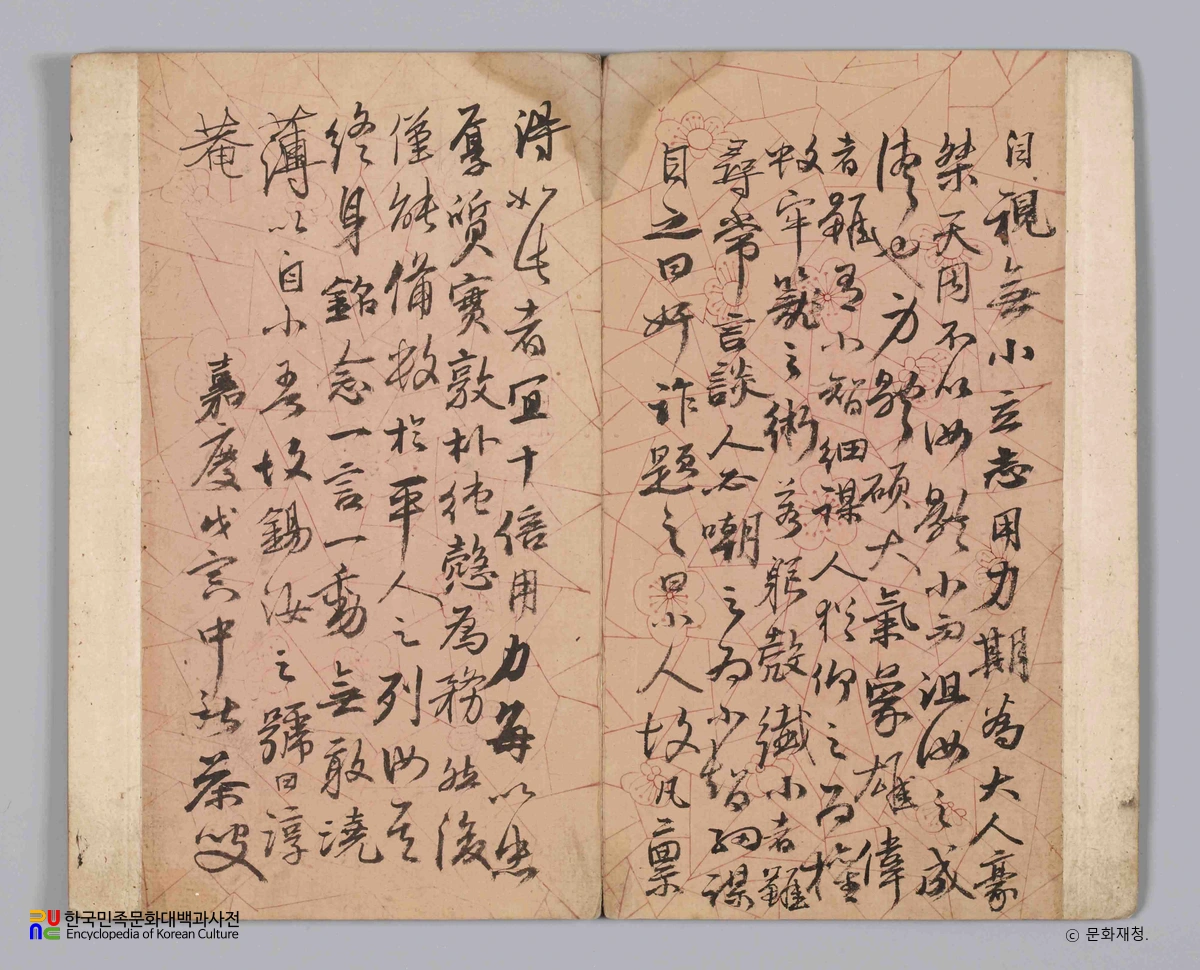 自視無小立志用力期爲大人豪
桀天固不以汝影小而沮汝之成
德也力影碩大氣象雄偉
者雖有小智細謀人猶仰之而權
數牢籠之術若軀殼纖小者雖
尋常言談人必嘲之爲小智細謀
目之曰奸詐題之曰小人故凡稟
得如此者宜十倍用力每以忠
厚質實敦朴純慤爲務然後
僅能備數於平人之列汝其
終身銘念一言一動無敢澆
薄以自小吾故錫汝之號曰淳
菴
嘉慶戊寅中秋茶叟
한국민족문화대백과사전
Encyclopedia of Korean Culture
ⓒ 문화재청.